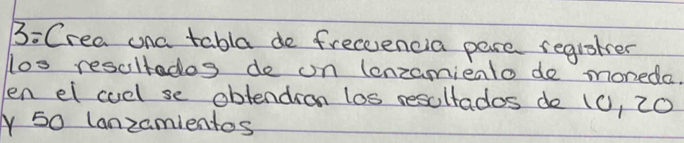 3=Crea una tabla de frecuencia para registrer
los resultados de un lanzamiento de moneda.
en el cual se obtendran los resultados de 10, 20
y 50 lanzamientos